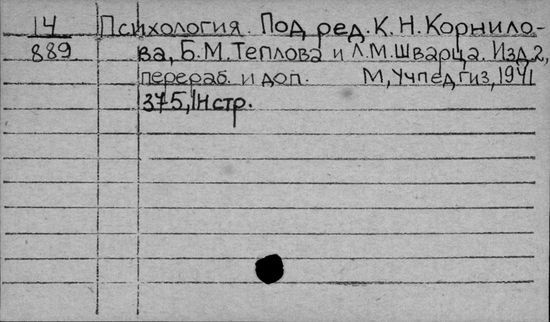 14 Психология. Под ред. К. Н. Корнило-
889 ва, Б. М. Теплова и Л. М. Шварца. Изд. 2,
перераб. и доп. М, Учпедгиз, 1941
375, IН стр.